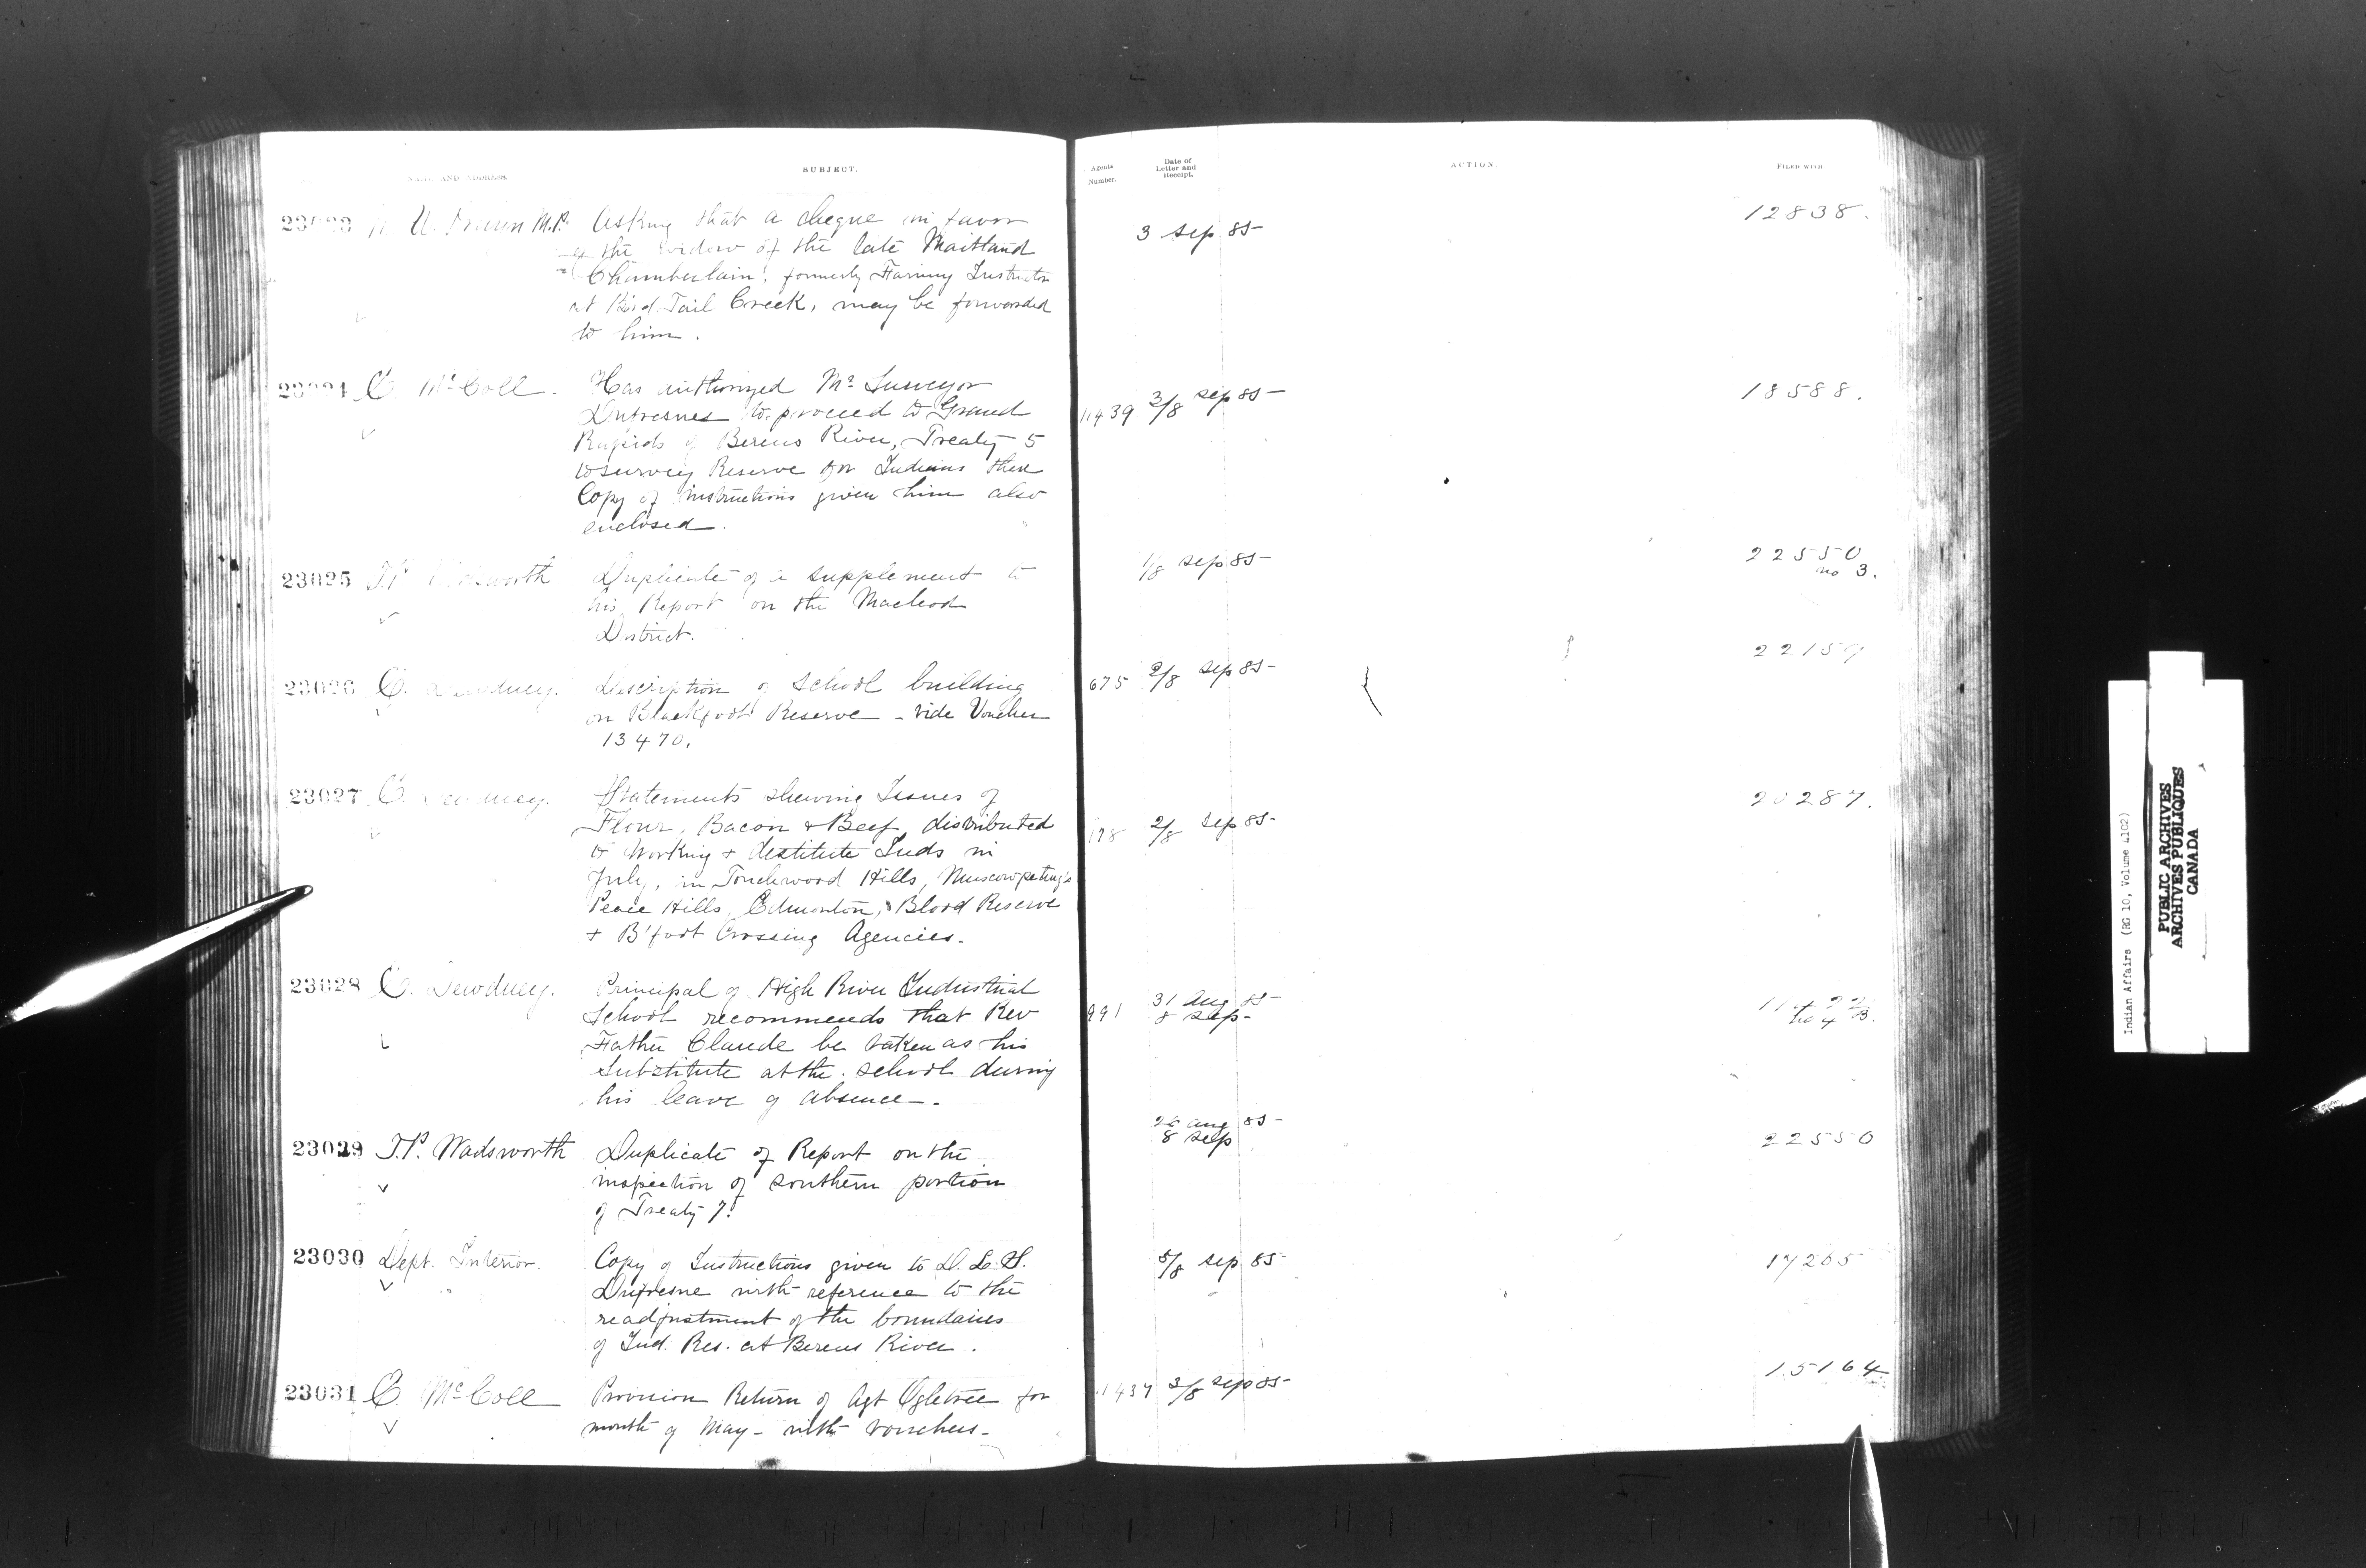 NAME AND ADDRESS.
SUBJECT.
Agents Number.
Date of Letter and Receipt.
ACTION.
FILED WITH
23023 M.P. Asking that a cheque in favor 3 Sep 85 12838.
of the widow of the late Maitland
Chamberlain, formerly Farming Instructor
at Bird Tail Creek, may be forwarded
to him.
23024 E. McColl. Has authorized Mr Surveyor 1439 3/8 Sep 85 18588.
Dufresnes to proceed to Grand
Rapids of Berens River, Treaty 5
to survey Reserve for Indians there
Copy of instructions given him also
enclosed.
23025 T.P. Wadsworth Duplicate of a supplement to 1/8 Sep 85 22550
no 3.
his Report on the Macleod
District.
23026 E. Dewdney. Description of School building 675 2/8 Sep 85 22157
on Blackfoot Reserve - vide Voucher
13470.
23027 E. Dewdney. Statements shewing Issues of 178 2/8 Sep 85 20287.
Flour, Bacon + Beef, distributed
to Working + destitute Inds in
July, in Touchwood Hills, Muscowpetung's
Peace Hills, Edmonton, Blood Reserve
+ B'foot Crossing Agencies.
23028 E. Dewdney. Principal of High River Industrial 991 31 Aug 85
8 Sep
School recommends that Rev
Father Claude be taken as his
Substitute at the school during
his leave of absence.
23029 T.P. Wadsworth Duplicate of Report on the 26 Aug 85 22550
8 Sep
inspection of southern portion
of Treaty 7.
23030 Dept. Interior. Copy of Instructions given to D.L.S. 5/8 Sep 85 17265
Dufresne with reference to the
readjustment of the boundaries
of Ind. Res. at Berens River.
23031 E. McColl Provision Return of Agt Ogletree for 1437 3/8 Sep 85 15164
month of May - with vouchers -
Indian Affairs (RG 10, Volume 4102)
PUBLIC ARCHIVES
ARCHIVES PUBLIQUES
CANADA